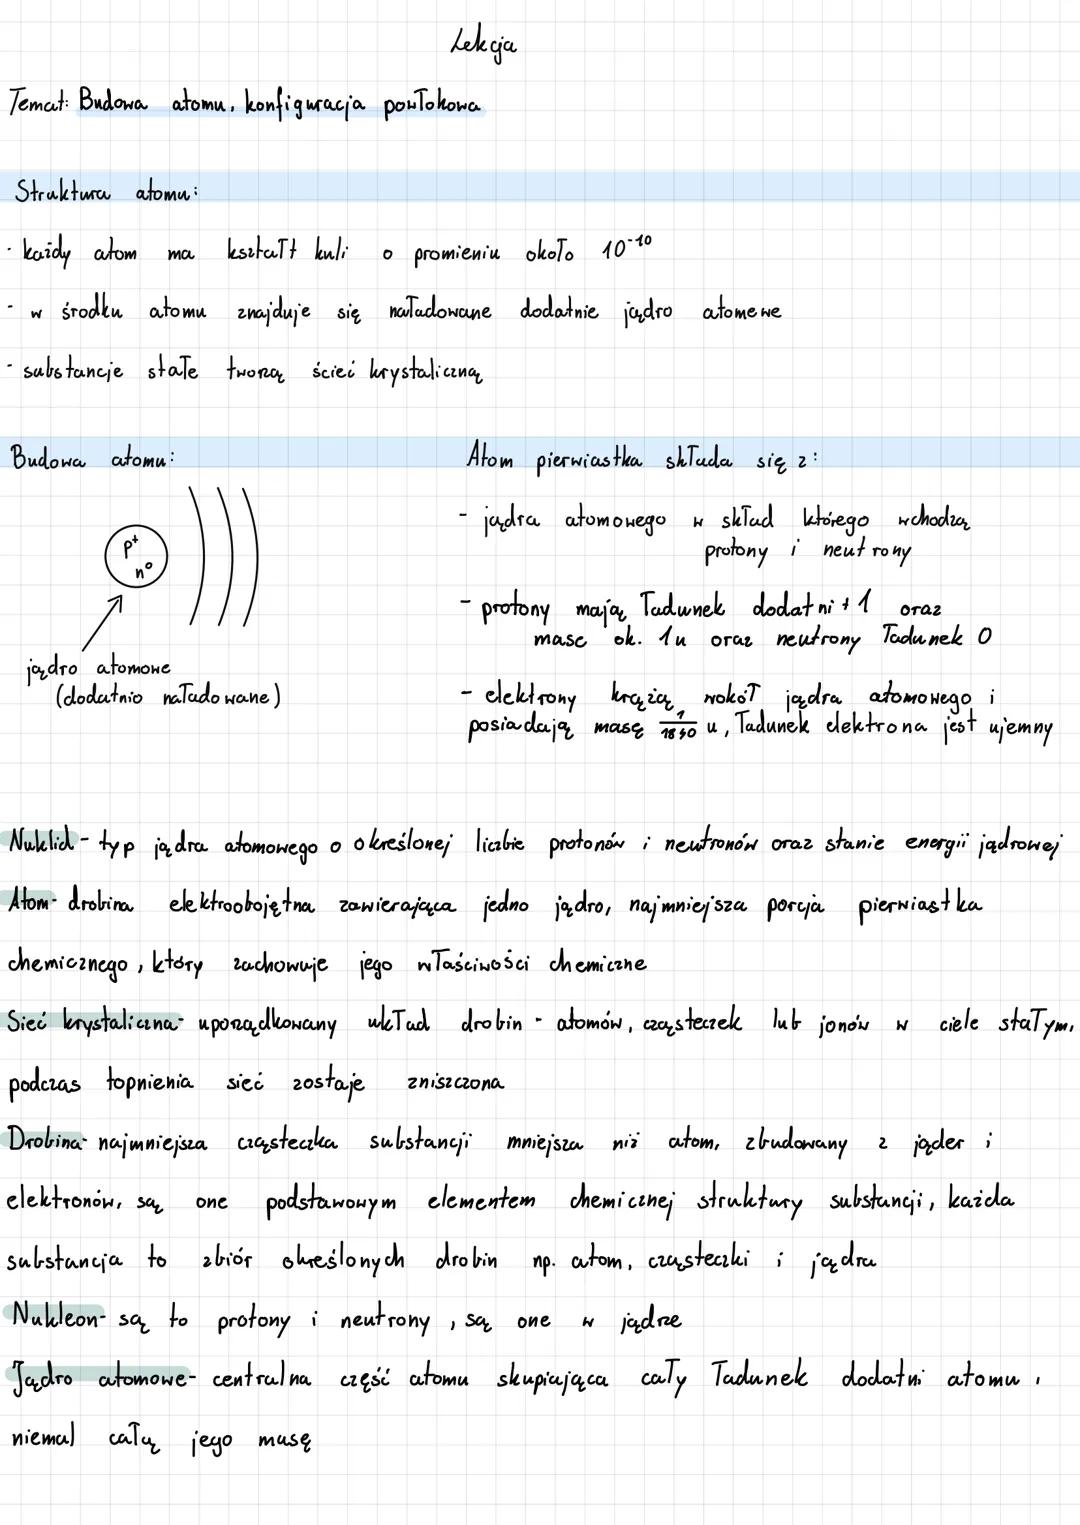 Lekcja
Temat: Budowa atomu, konfiguracja powłokowa
Struktura atomu:
- każdy atom ma kształt kuli o promieniu około 10⁻¹⁰
- w środku atomu znajduje się naładowane dodatnie jądro atomewe
- substancje stałe tworzą ścieć krystaliczną
Budowa atomu:
p⁺
n⁰
jądro atomowe
(dodatnio naładowane)
Atom pierwiastka składa się z:
- jądra atomowego w skład którego wchodzą
protony i neutrony
- protony mają ładunek dodatni +1 oraz
mase ok. 1u oraz neutrony ładunek 0
- elektrony krążą wokół jądra atomowego i
posiadają masę 1/1840 u, ładunek elektrona jest ujemny
Nuklid - typ jądra atomowego o określonej liczbie protonów i neutronów oraz stanie energii jądrowej
Atom - drobina elektroobojętna zawierająca jedno jądro, najmniejsza porcja pierwiastka
chemicznego, który zachowuje jego właściwości chemiczne
Sieć krystaliczna - uporządkowany układ drobin - atomów, cząsteczek lub jonów w ciele stałym,
podczas topnienia sieć zostaje zniszczona
Drobina - najmniejsza cząsteczka substancji mniejsza niż atom, zbudowany z jąder i
elektronów, są one podstawowym elementem chemicznej struktury substancji, każda
substancja to zbiór określonych drobin np. atom, cząsteczki i jądra
Nukleon - są to protony i neutrony, są one w jądrze
Jądro atomowe - centralna część atomu skupiająca cały ładunek dodatni atomu,
niemal całą jego masę